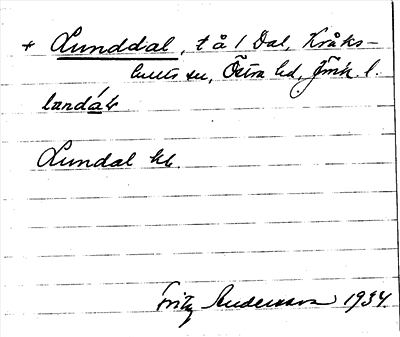 + Lunddal, t å 1 Dal, Kråks-
hults sn, Östra hd, Jönk. l.
lundáɫ
Lundal kb.
Fritz Andersson 1934.